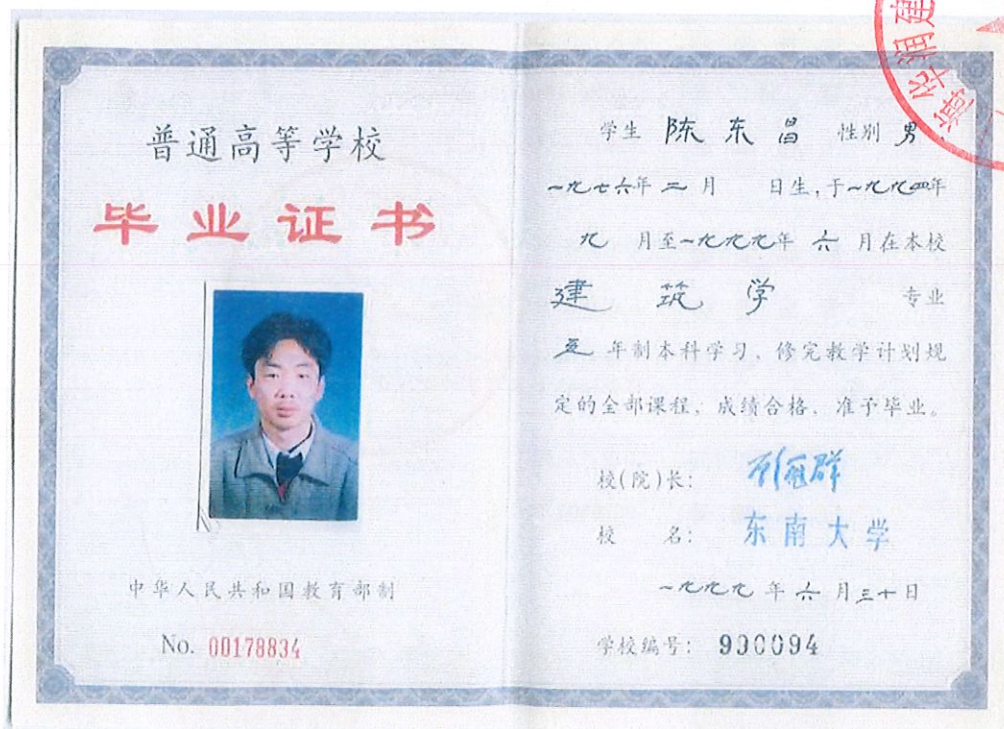 普通高等学校
毕业证书
中华人民共和国教育部制
No. 00178834
学生 陈东昌 性别 男
一九七六年二月 日生,于一九九四年
九 月至一九九九年 六 月在本校
建筑学 专业
五 年制本科学习,修完教学计划规
定的全部课程,成绩合格,准予毕业。
校(院)长:
校 名: 东南大学
一九九九年六月三十日
学校编号: 990094
海华润建